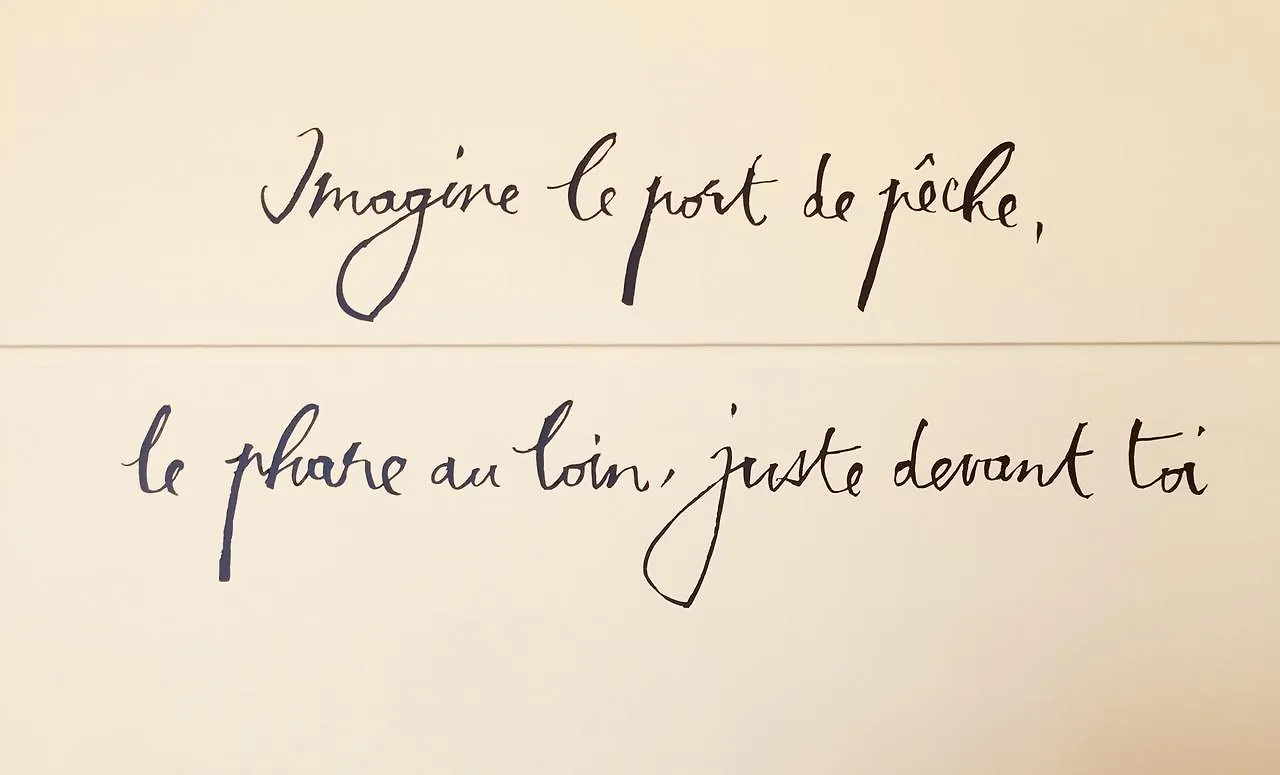 Imagine le port de pêche,
le phare au loin, juste devant toi